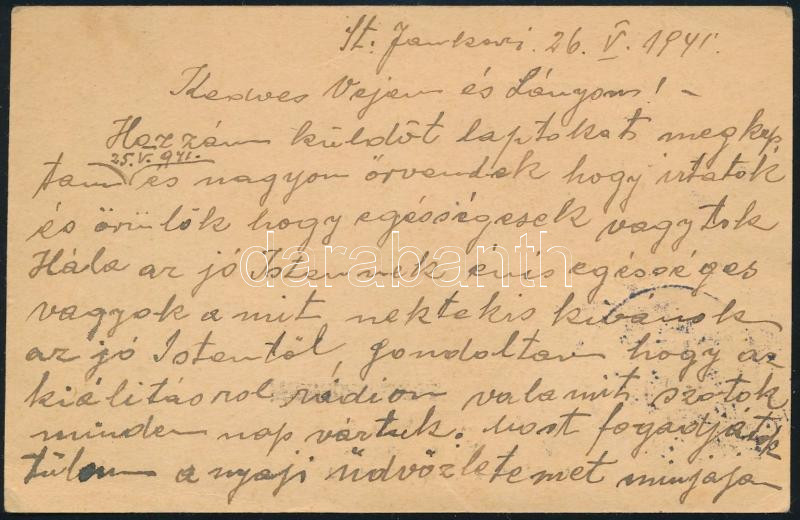 St. Jankovci. 26. V. 1941.
Kedves Vejem és Lányom! -
Hozzám küldöt laptokat megkap
25. V. 941.
tam és nagyon örvendek hogy irtatok
és örülök hogy egésségesek vagytok
Hála az jó Istennek énis egésséges
darabanth
vagyok a mit nektekis kivánok
az jó Istentöl, gondoltam hogy az
kiálitásrol rádion valamit szotok
minden nap vártuk. Most fogadjátok
tölem anyaji üdvözletemet minyájan